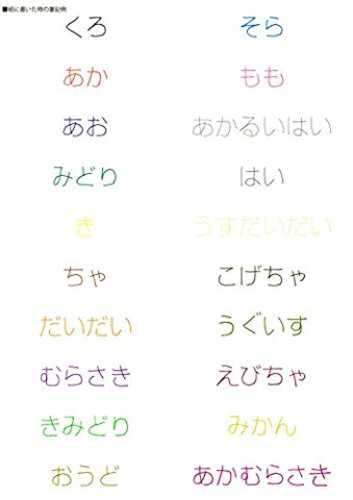 ■紙に書いた時の筆記例
くろ
そら
あか
もも
あお
あかるいはい
みどり
はい
き
うすだいだい
ちゃ
こげちゃ
だいだい
うぐいす
むらさき
えびちゃ
きみどり
みかん
おうど
あかむらさき